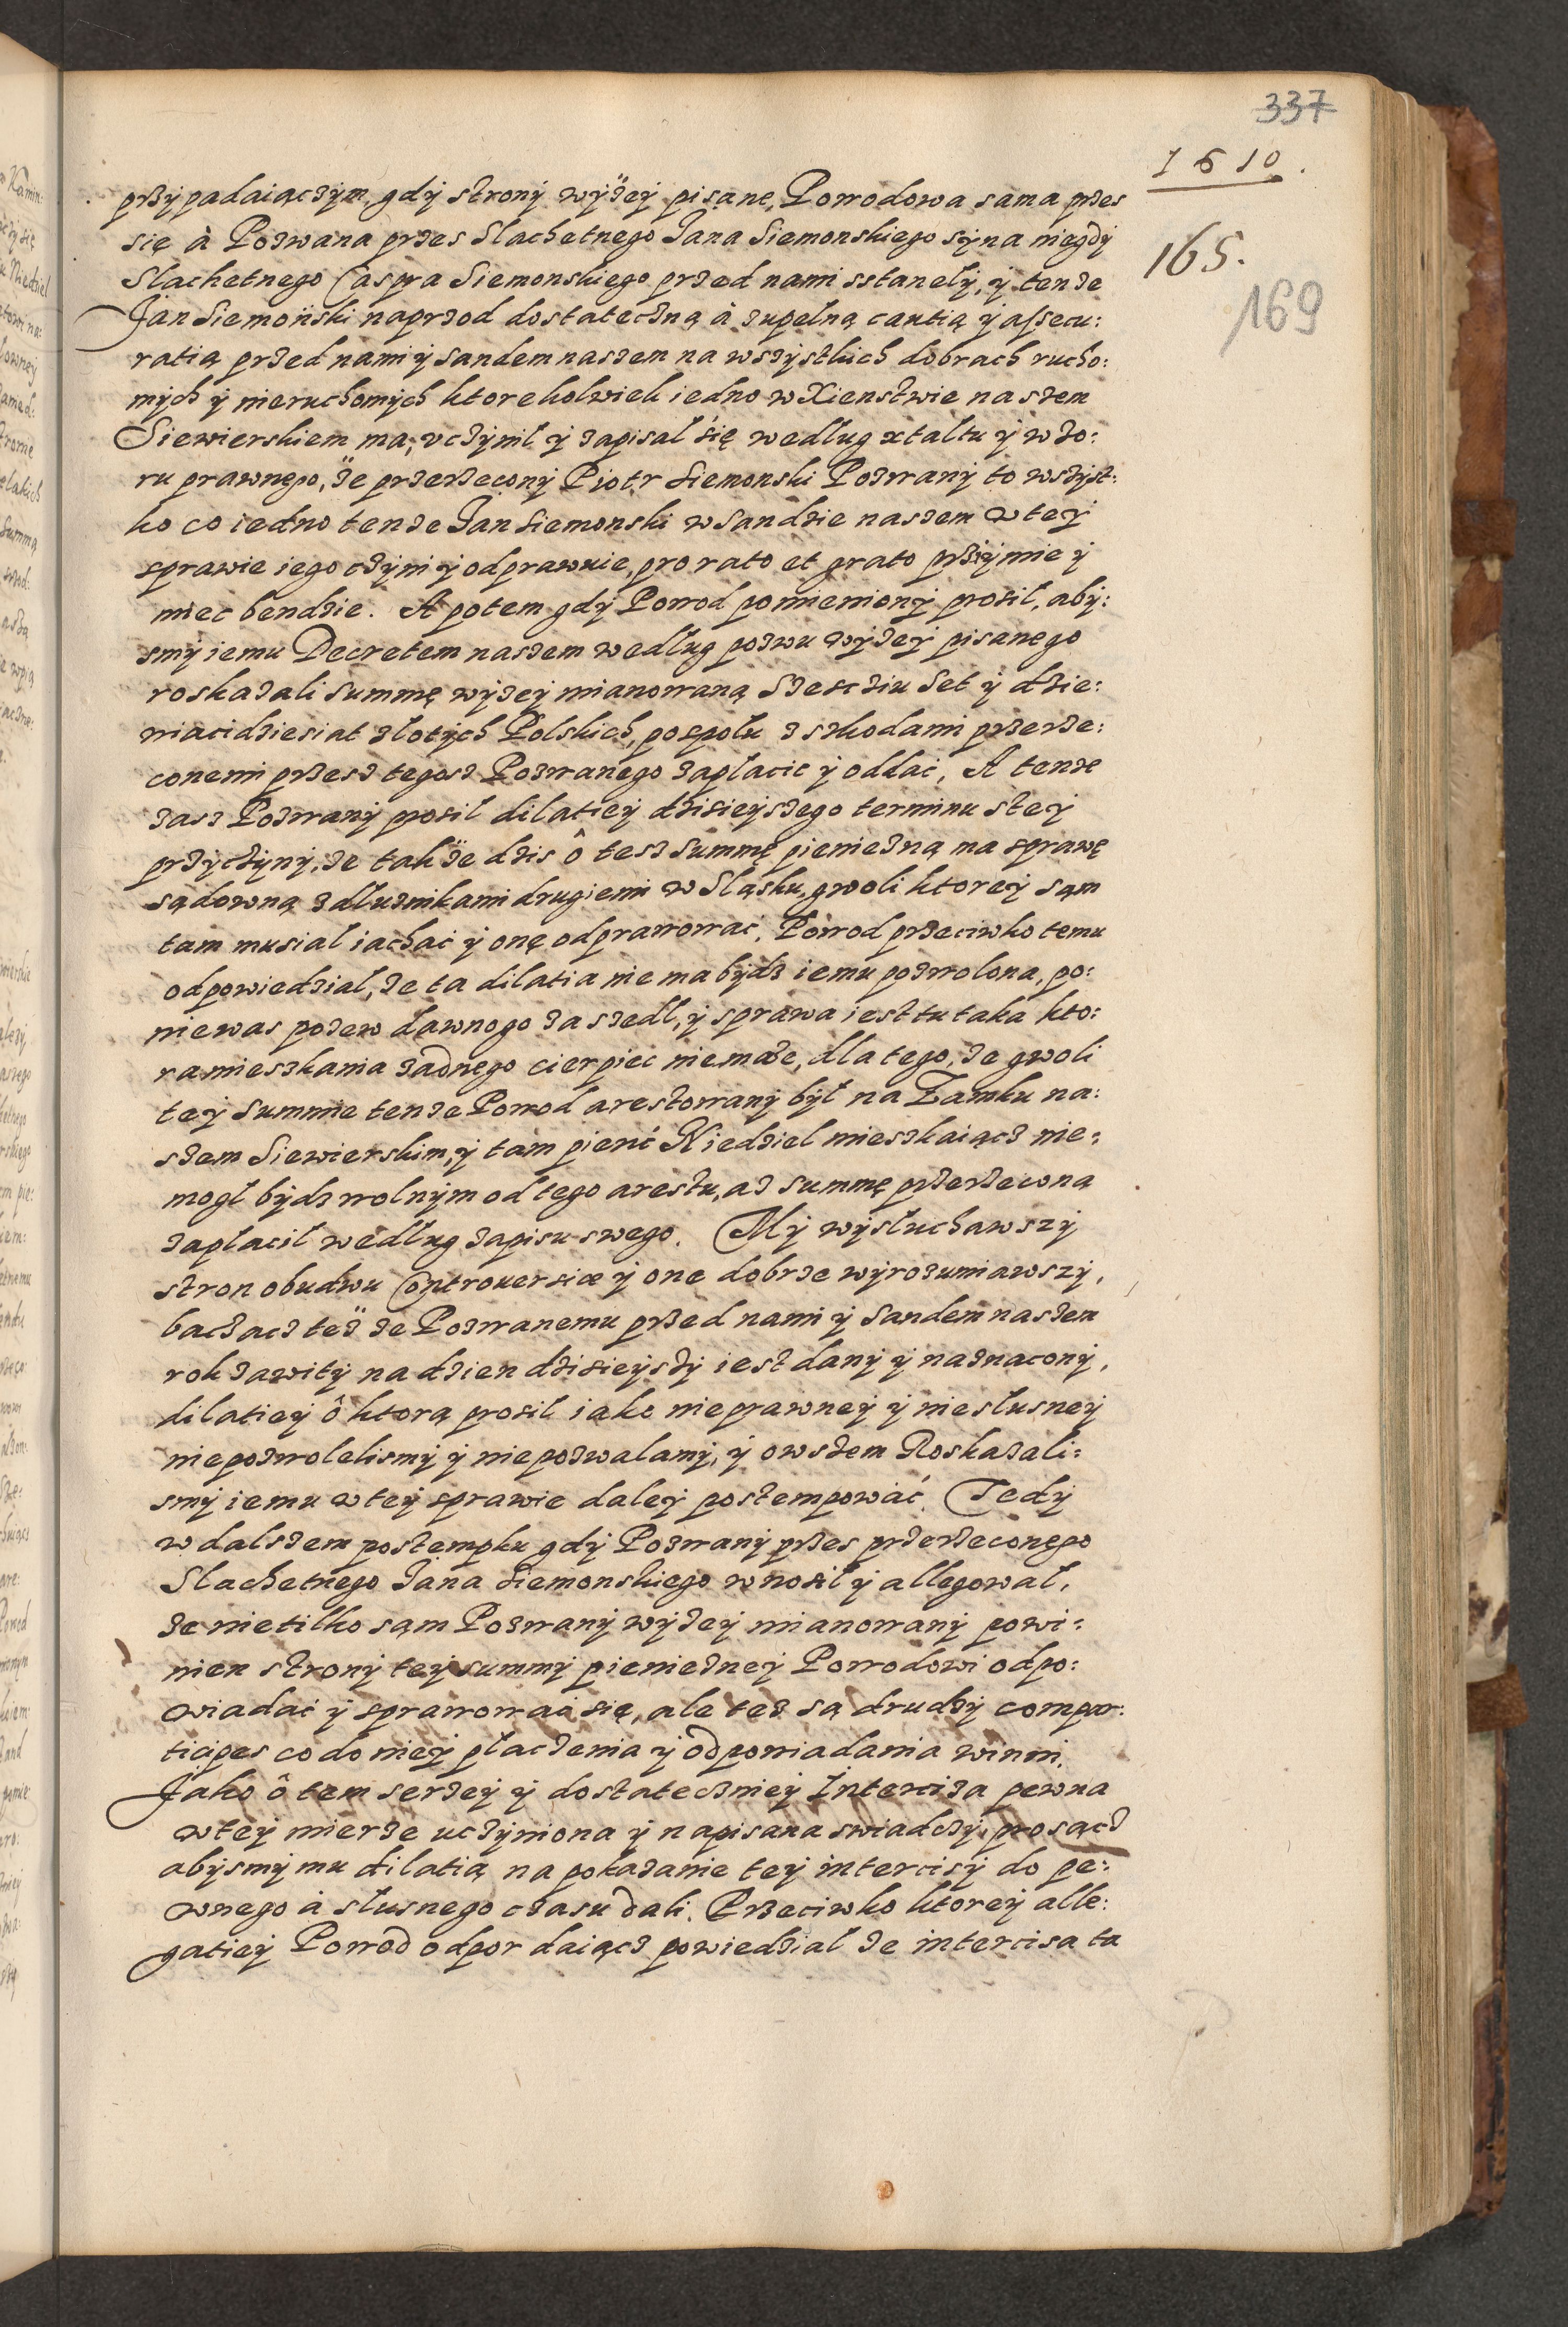 337
1610.
165.
169
przypadaiączym, gdy strony wyżey pisane, Powodowa sama przes
się à Pozwana przes Slachetnego Jana Siemonskiego syna niegdy
Slachetnego Caspra Siemonskiego przed nami sstanely, y tenze
Jan Siemoński naprzod dostateczną à zupełną cautią y assecu:
ratią przed nami y Sandem naszem na wszystkich dobrach rucho:
mych y nieruchomych ktorekolwiek iedno w Xienstwie naszem
Siewierskiem ma, vczynil y zapisal się według xtaltu y wzo:
ru prawnego, że przerzeczony Piotr Siemonski Pozwany to wszyst:
ko co iedno tenze Jan Siemonski w Sandzie naszem w tey
sprawie iego czyni y odprawuie, pro rato et grato przyimie y
miec bendzie. A potem gdy Powod pomieniony prosil, aby:
smy iemu Decretem naszem według pozwu wyzey pisanego
roskazali Summę wyzey mianowaną Szescziu Set y dzie:
wiacidziesiat złotych Polskich, pospołu z szkodami przerze:
conemi przesz tegosz Pozwanego zapłacic y oddać, A tenze
zasz Pozwany prosil dilatiey dzisieyszego terminu stey
przyczyny, ze także dzis ô tesz Summę pieniezną ma sprawę
sądowną z dłuznikami drugiemi w Sląsku, gwoli ktorey sąm
tam musiał iachać y onę odprawować. Powod przeciwko temu
odpowiedział, ze ta dilatia nie ma bydz iemu pozwolona, po:
niewas pozew dawnogo zaszedł, y sprawa iest tu taka kto:
ra mieszkania żadnego cierpiec niemoże, dla tego, ze gwoli
tey Summie tenze Powod arestowany był na Zamku na:
szem Siewierskim, y tam pienć Niedziel mieszkaiącz nie:
mogł bydz wolnym od tego arestu, az Summę przerzeconą
zapłacił według zapisu swego. My wysłuchawszy
stron obudwu Controuersiæ y one dobrze wyrozumiawszy,
baczacz też ze Pozwanemu przed nami y Sandem naszem
rok zawity na dzien dzisieyszy iest dany y naznacony,
dilatiey ô ktorą prosil iako nieprawney y niesłusney
niepozwolelismy y niepozwalamy, y owszem Roskazali:
smy iemu w tey sprawie daley postempować. Tedy
w dalszem postempku gdy Pozwany przes przerzeconego
Slachetnego Jana Siemonskiego wnosił y allegował,
ze nietilko sąm Pozwany wyzey mianowany powi:
nien strony tey summy pieniezney Powodowi odpo:
wiadać y sprawować się, ale tez są drudzy compar:
ticipes co do niey płaczenia y odpowiadania winni,
Jako ô tem serzey y dostateczniey Interciza pewna
w tey mierze uczyniona y napisana swiadczy, prosącz
abysmy mu dilatią na pokazanie tey intercisy do pe:
wnego à słusnego czasu dali. Przeciwko ktorey alle:
gatiey Powod odpor daiącz powiedział ze intercisa ta